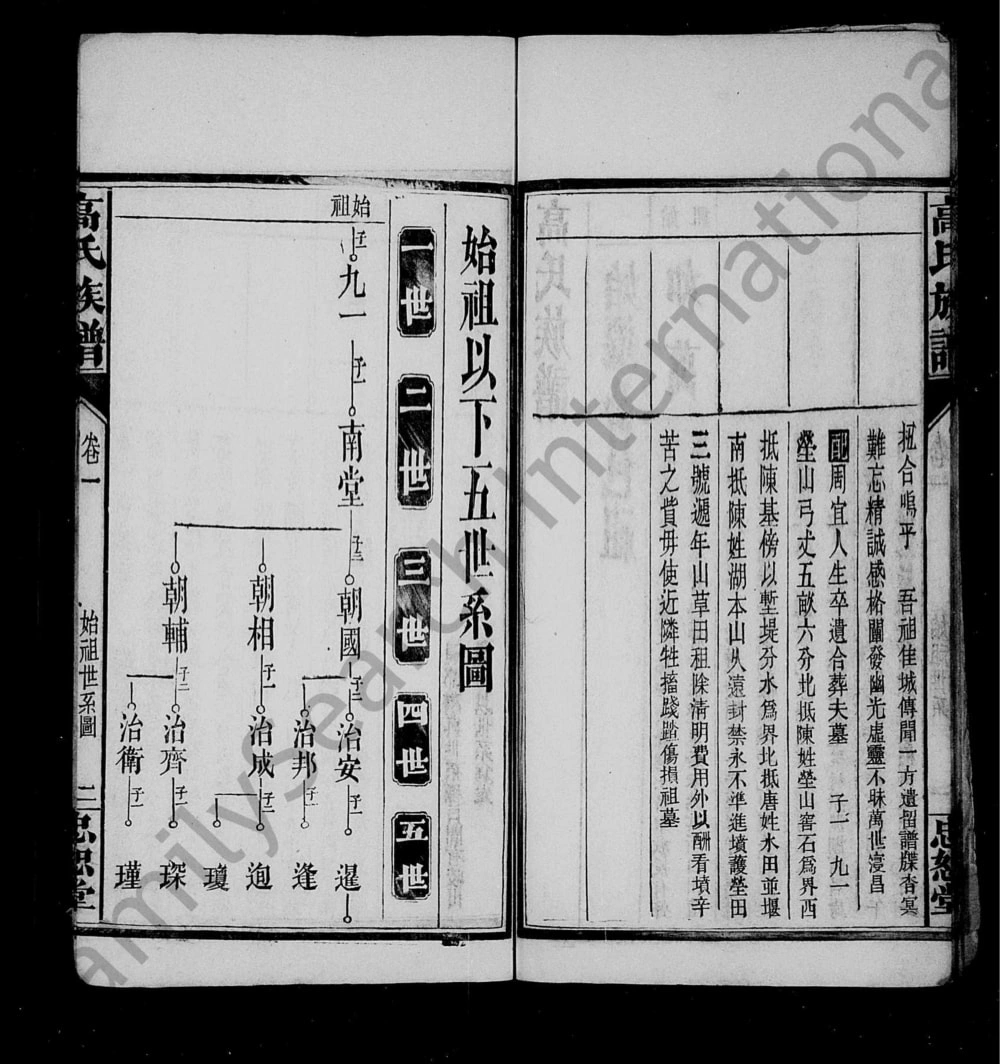 高氏族譜
忠恕堂
柩合嗚乎　吾祖佳城傳聞一方遺留譜牒杳冥
難忘精誠感格闡發幽光虛靈不昧萬世寖昌
配周宜人生卒遺合葬夫墓　子一　九一
塋山弓丈五畝六分北抵陳姓塋山窖石爲界西
抵陳基傍以塹堤分水爲界北抵唐姓水田並堰
南抵陳姓湖本山久遠封禁永不準進墳護塋田
三號遞年山草田租除清明費用外以酬看墳辛
苦之貲毋使近隣牲搐踐踏傷損祖墓
始祖以下五世系圖
一世　二世　三世　四世　五世
始祖
子一　九一　子一　南堂　子三　朝國　子二　治安　子一　暹
治邦　子一　逢
朝相　子一　治成　子二　迿
瓊
朝輔　子二　治齊　子一　琛
治衛　子一　瑾
高氏族譜　卷一　始祖世系圖　二　忠恕堂
FamilySearch International